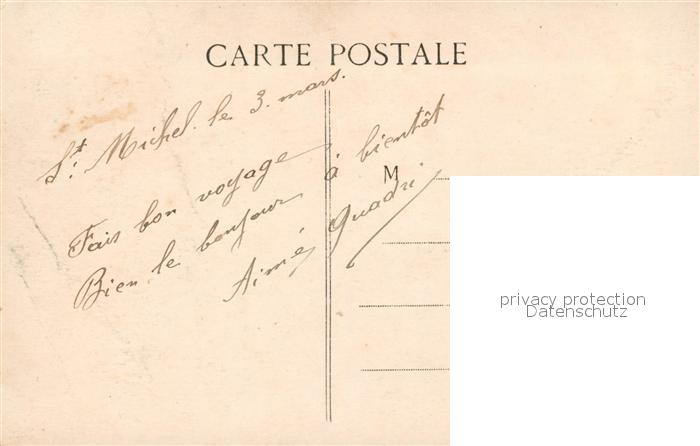 CARTE POSTALE
St. Michel le 3 mars.
Fais bon voyage
Bien le bonjour à bientôt
Aimé Quadri
M
privacy protection
Datenschutz